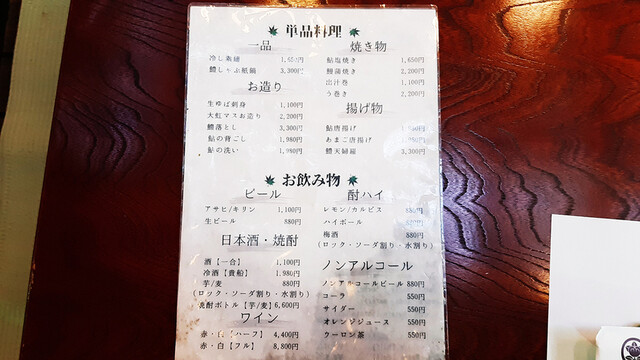 単品料理
一品
冷し素麺 1,650円
鱧しゃぶ紙鍋 3,300円
お造り
生ゆば刺身 1,100円
大虹マスお造り 2,200円
鱧落とし 3,300円
鮎の背ごし 1,980円
鮎の洗い 1,980円
焼き物
鮎塩焼き 1,650円
鰻蒲焼き 2,200円
出汁巻 1,100円
う巻き 2,200円
揚げ物
鮎唐揚げ
あまご唐揚げ
鱧天婦羅 3,300円
お飲み物
ビール
アサヒ/キリン 1,100円
生ビール 880円
日本酒・焼酎
酒【一合】 1,100円
冷酒【貴船】 1,980円
芋/麦 880円
(ロック・ソーダ割り・水割り)
焼酎ボトル【芋/麦】6,600円
ワイン
赤・白【ハーフ】 4,400円
赤・白【フル】 8,800円
酎ハイ
レモン/カルピス 880円
ハイボール
梅酒 880円
(ロック・ソーダ割り・水割り)
ノンアルコール
ノンアルコールビール 880円
コーラ 550円
サイダー 550円
オレンジジュース 550円
ウーロン茶 550円